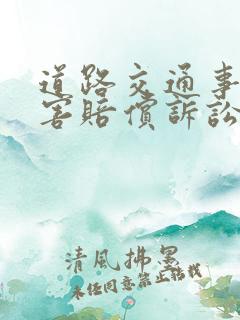 道路交通事
害賠償訴訟
清風拂墨
未經同意禁止轉載